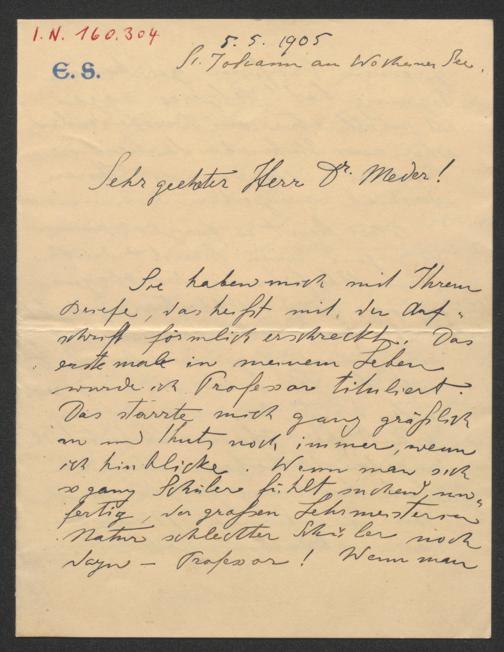 I.N. 160.304
5.5.1905
St. Johann am Wocheiner See.
E.S.
Sehr geehrter Herr Dr. Meder!
Sie haben mich mit Ihrem
Briefe, das heißt mit der Auf-
schrift förmlich erschreckt. Das
erste mal in meinem Leben
wurde ich Professor tituliert.
Das starrte mich ganz gräßlich
an und thuts noch immer, wenn
ich hinblicke. Wenn man sich
so ganz Schüler fühlt suchend, un-
fertig, der großen Lehrmeisterin
Natur schlechter Schüler noch
dazu – Professor! Wenn man